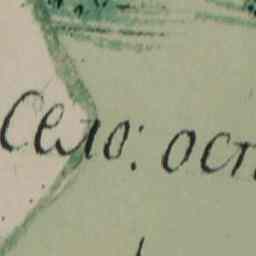 Село: осп